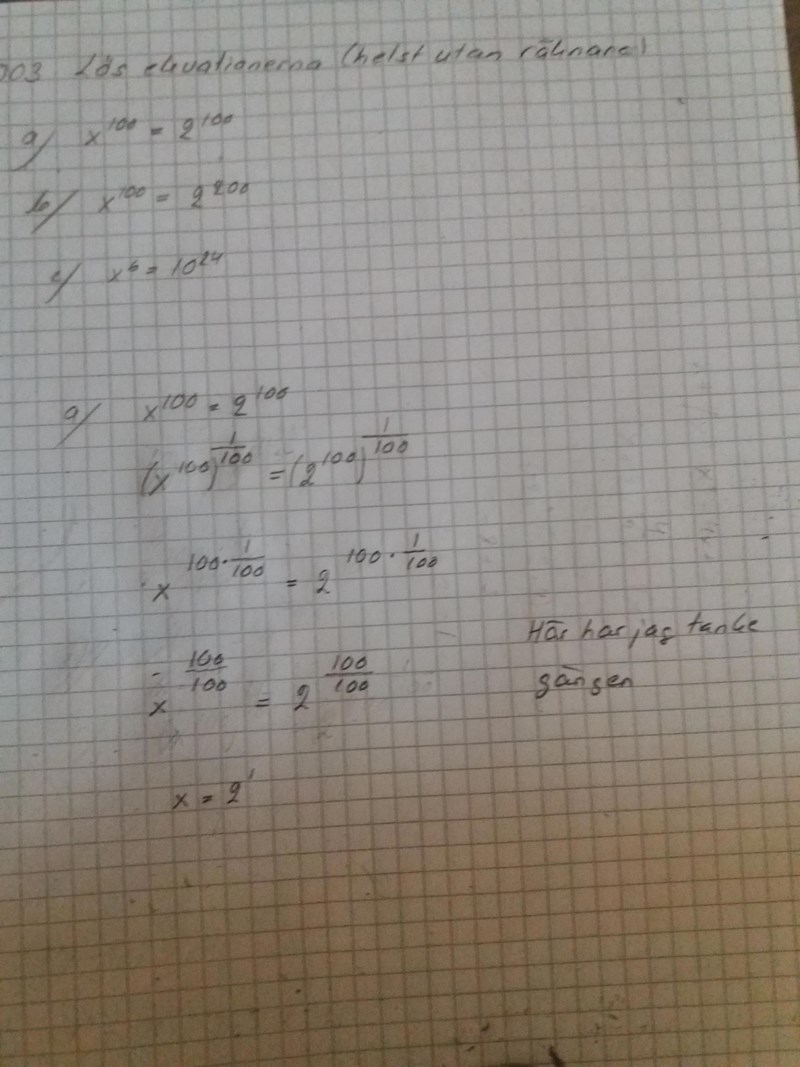 003 Lös ekvationerna (helst utan räknare)
a) x^100 = 2^100
b) x^100 = 2^200
c) x^6 = 10^24
a) x^100 = 2^100
(x^100)^(1/100) = (2^100)^(1/100)
x^(100·1/100) = 2^(100·1/100)
Här har jag tanke
x^(100/100) = 2^(100/100)
gången
x = 2^1